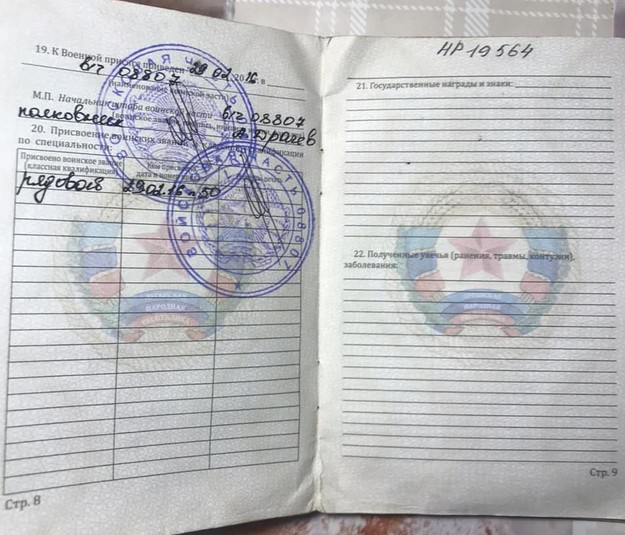 19. К Военной присяге приведен 29 02 2016 в
в/ч 08807
(наименование воинской части)
М.П. Начальник штаба воинской части в/ч 08807
полковник А. Драгев
20. Присвоение воинских званий квалификация
по специальности:
Присвоено воинское звание
(классная квалификация)
дата и номер
рядовой 29.02.16 п. 50
ВОЙСКОВАЯ ЧАСТЬ 08807
НАРОДНАЯ
Стр. 8
НР 19564
21. Государственные награды и знаки:
22. Полученные увечья (ранения, травмы, контузии),
заболевания:
НАРОДНАЯ
Стр. 9